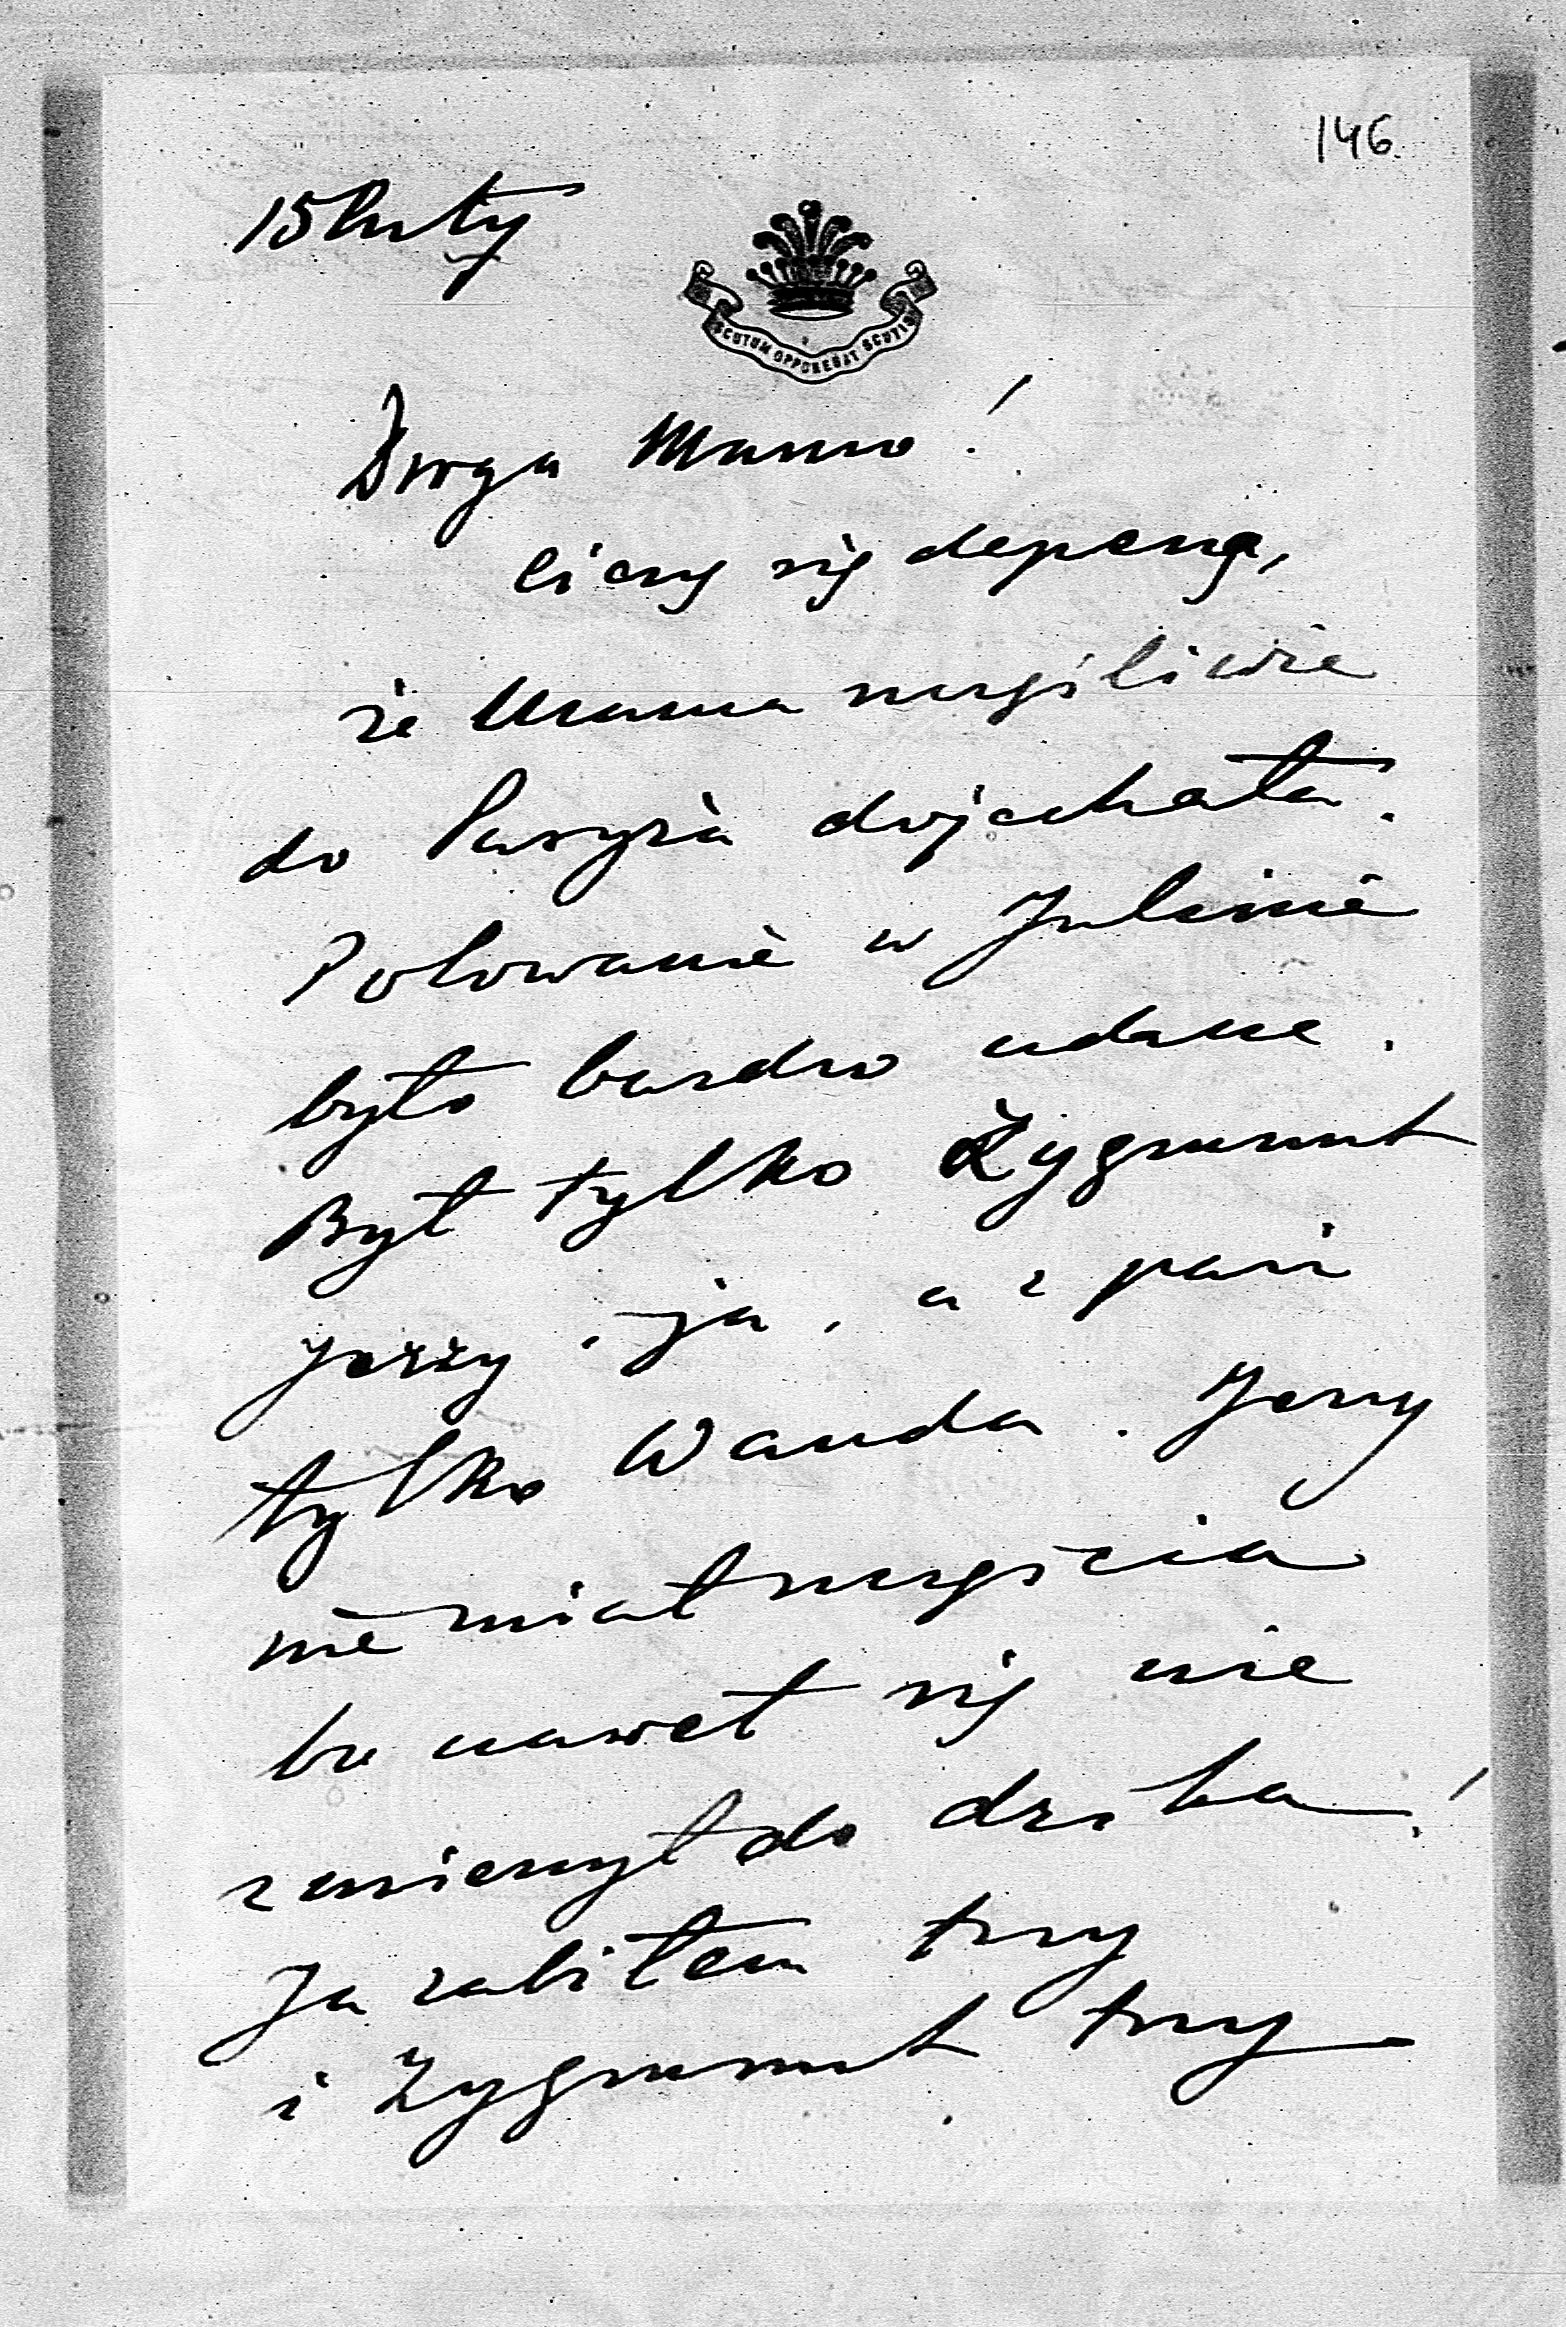 146
15 luty
SCUTUM OPPONEBAT SCUTIS
Droga Mamo!
Cieszy się depeszą,
że Mama szczęśliwie
do Paryża dojechała.
Polowanie w Julinie
było bardzo udane.
Był tylko Zygmunt
Jerzy, ja, a z pań
tylko Wanda. Jerzy
nie miał szczęścia
bo nawet się nie
zmierzył do dzika!
Ja zabiłem trzy
i Zygmunt trzy.